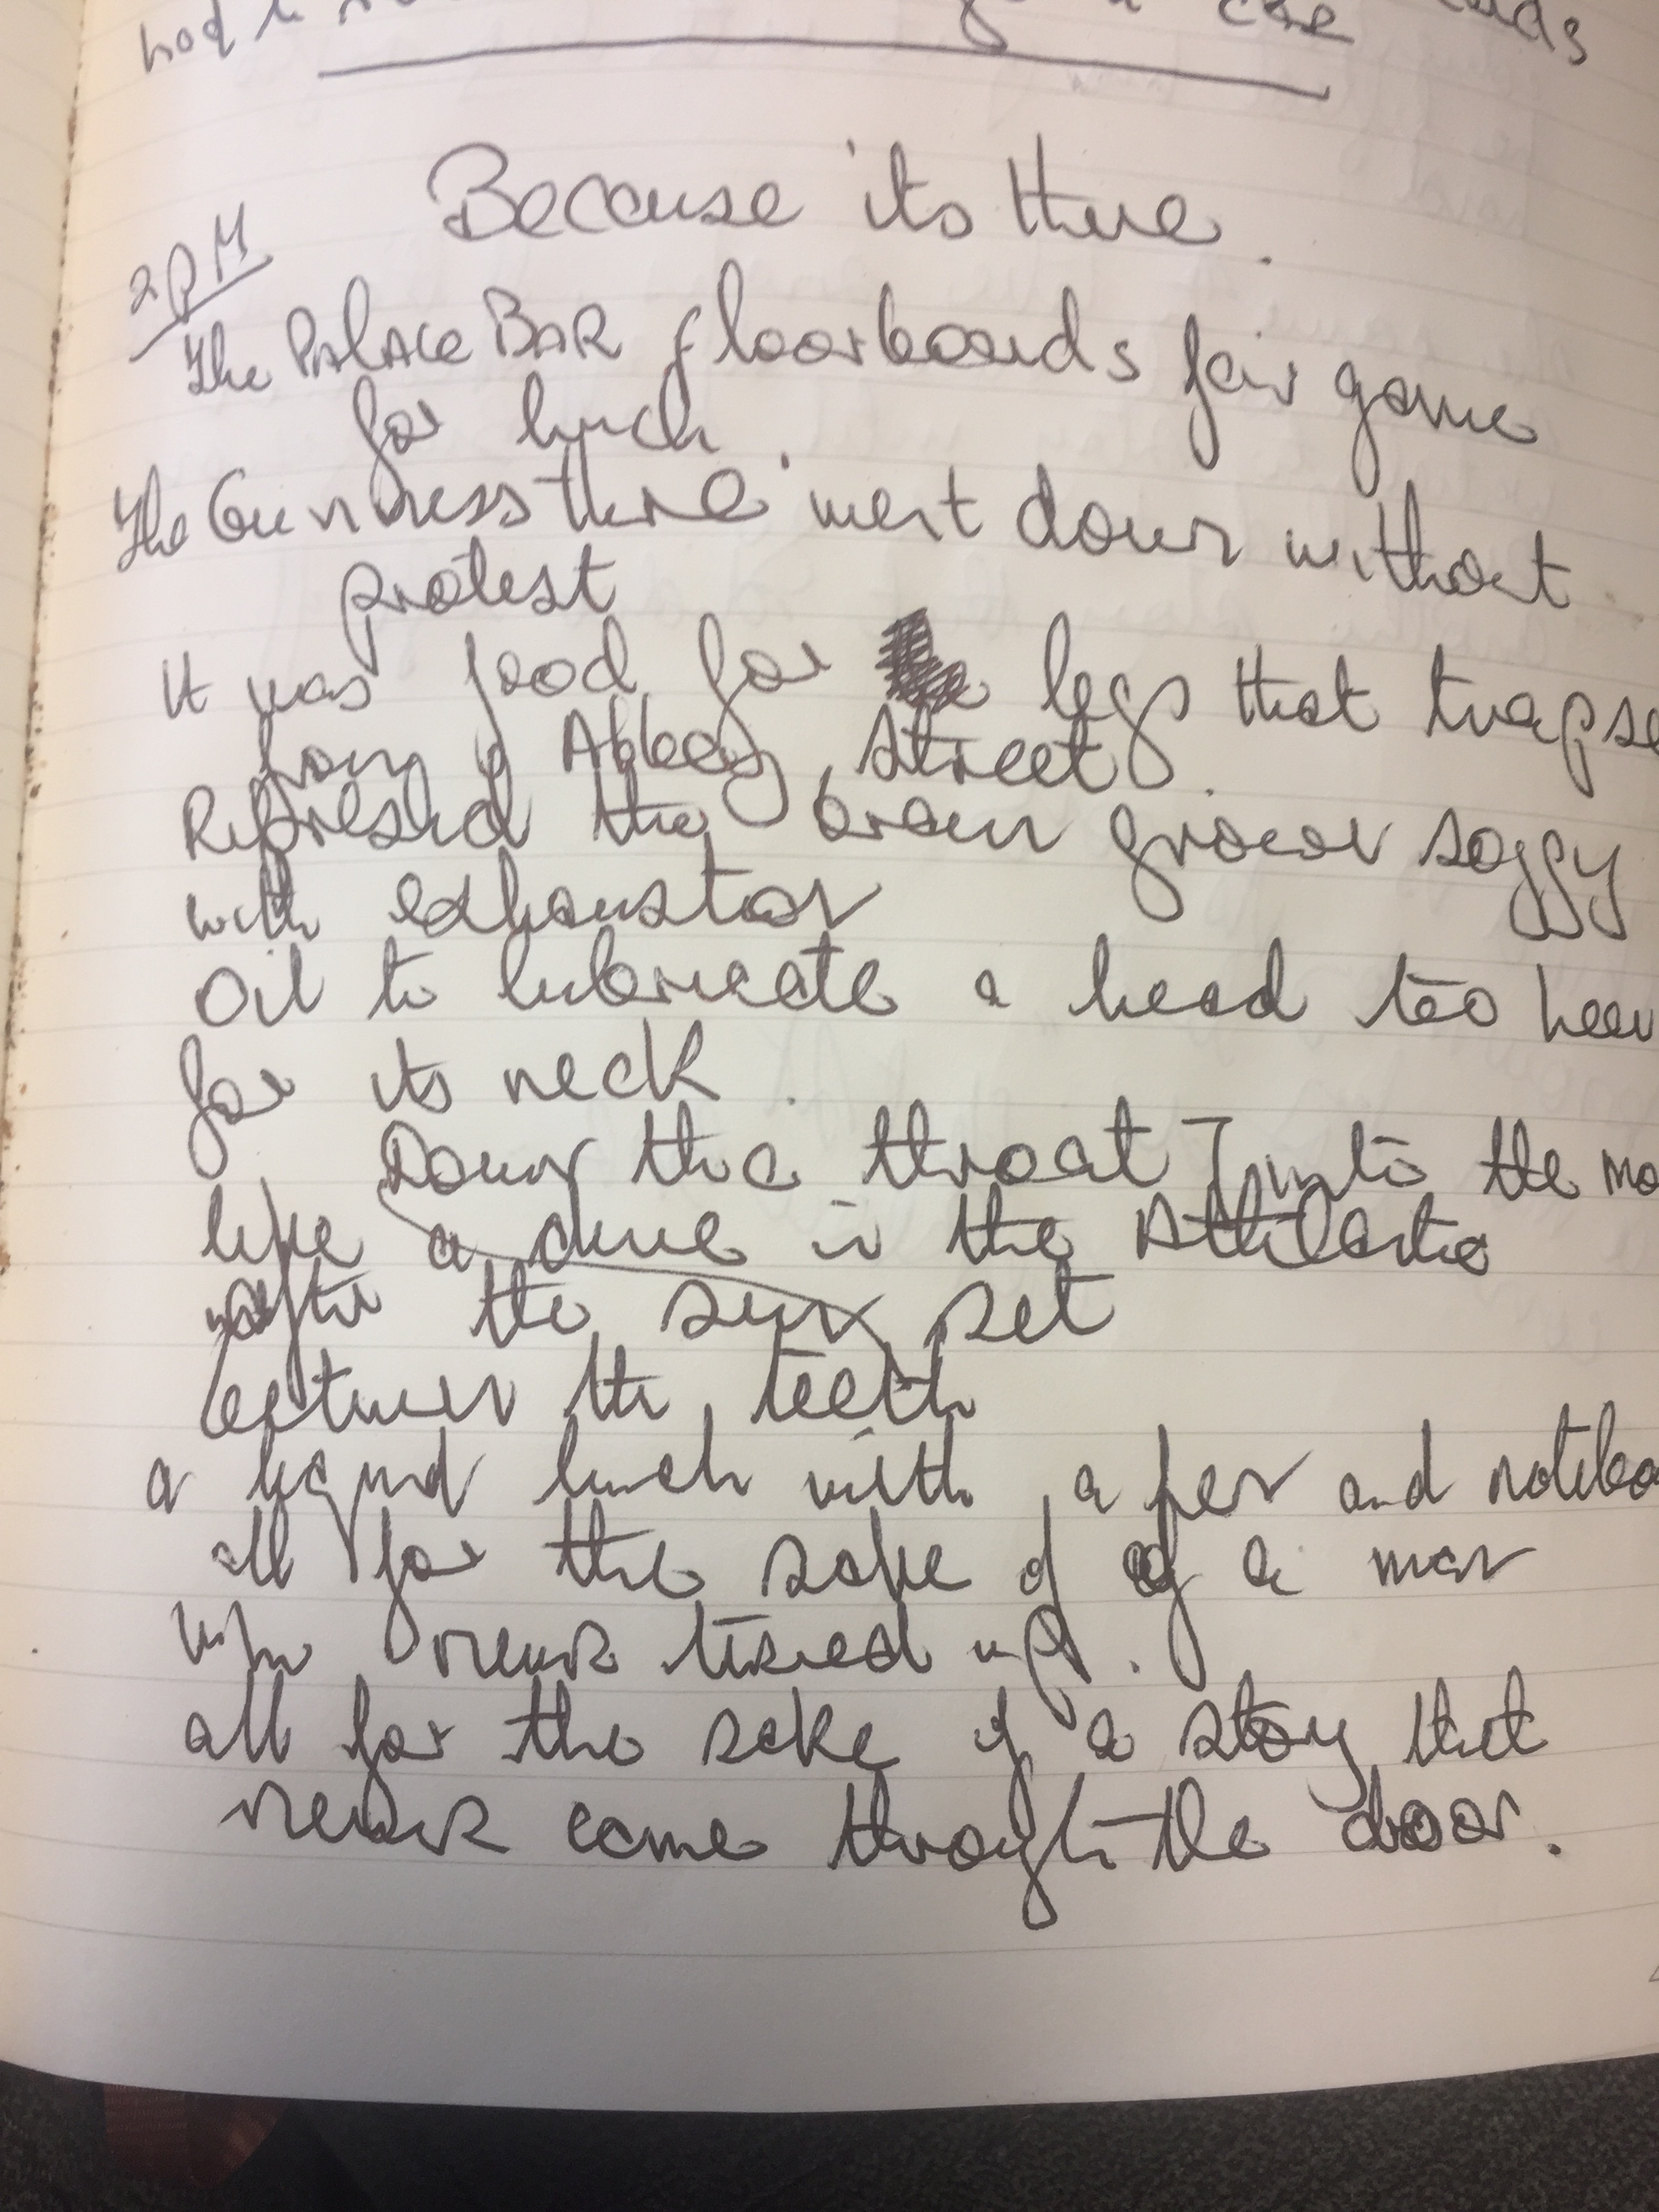 Because its there.
2PM
The PALACE BAR floorboards fair game
for lunch.
The Guinness there went down without
protest
It was food for legs that trapse
from Abbey Street.
Refreshed the brain grown soggy
with exhaustion
Oil to lubricate a head too heav
for its neck.
Down the throat into the mo
like a dive in the Atlantic
after the sun set
between the teeth
a liquid lunch with a pen and notebo
all for the sake of of a man
who never turned up.
all for the sake of a story that
never came through the door.